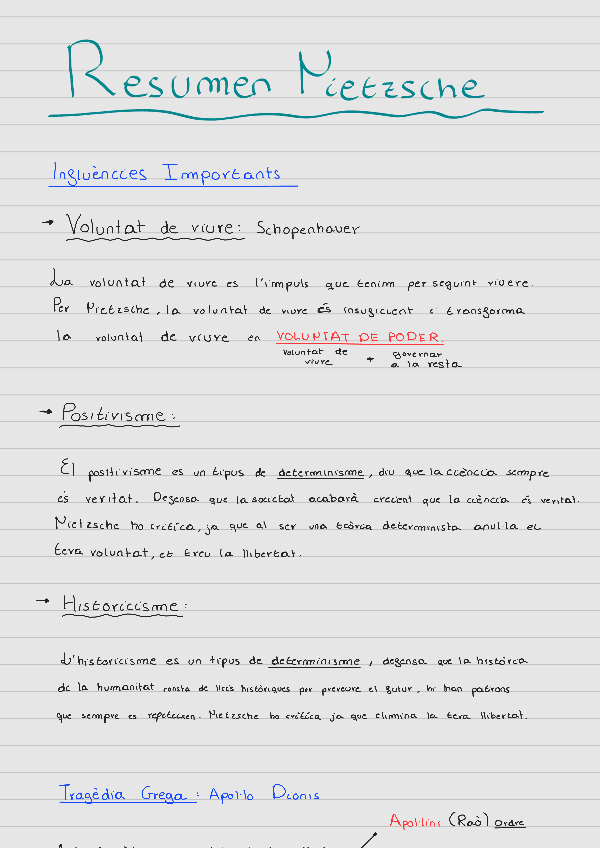 Resumen Nietzsche
Influències Importants
→ Voluntat de viure: Schopenhauer
La voluntat de viure es l'impuls que tenim per seguint vivere.
Per Nietzsche, la voluntat de viure és insuficient i transforma
la voluntat de viure en VOLUNTAT DE PODER.
voluntat de viure + governar a la resta
→ Positivisme:
El positivisme es un tipus de determinisme, diu que la ciència sempre
és veritat. Defensa que la societat acabarà creient que la ciència és veritat.
Nietzsche ho critica, ja que al ser una teòria determinista anul·la el
teva voluntat, et treu la llibertat.
→ Historicisme:
L'historicisme es un tipus de determinisme, defensa que la història
de la humanitat consta de lleis històriques per preveure el futur, hi han patrons
que sempre es repeteixen. Nietzsche ho critica ja que elimina la teva llibertat.
Tragèdia Grega: Apol·lo Dionis
Apol·lini (Raó) ordre